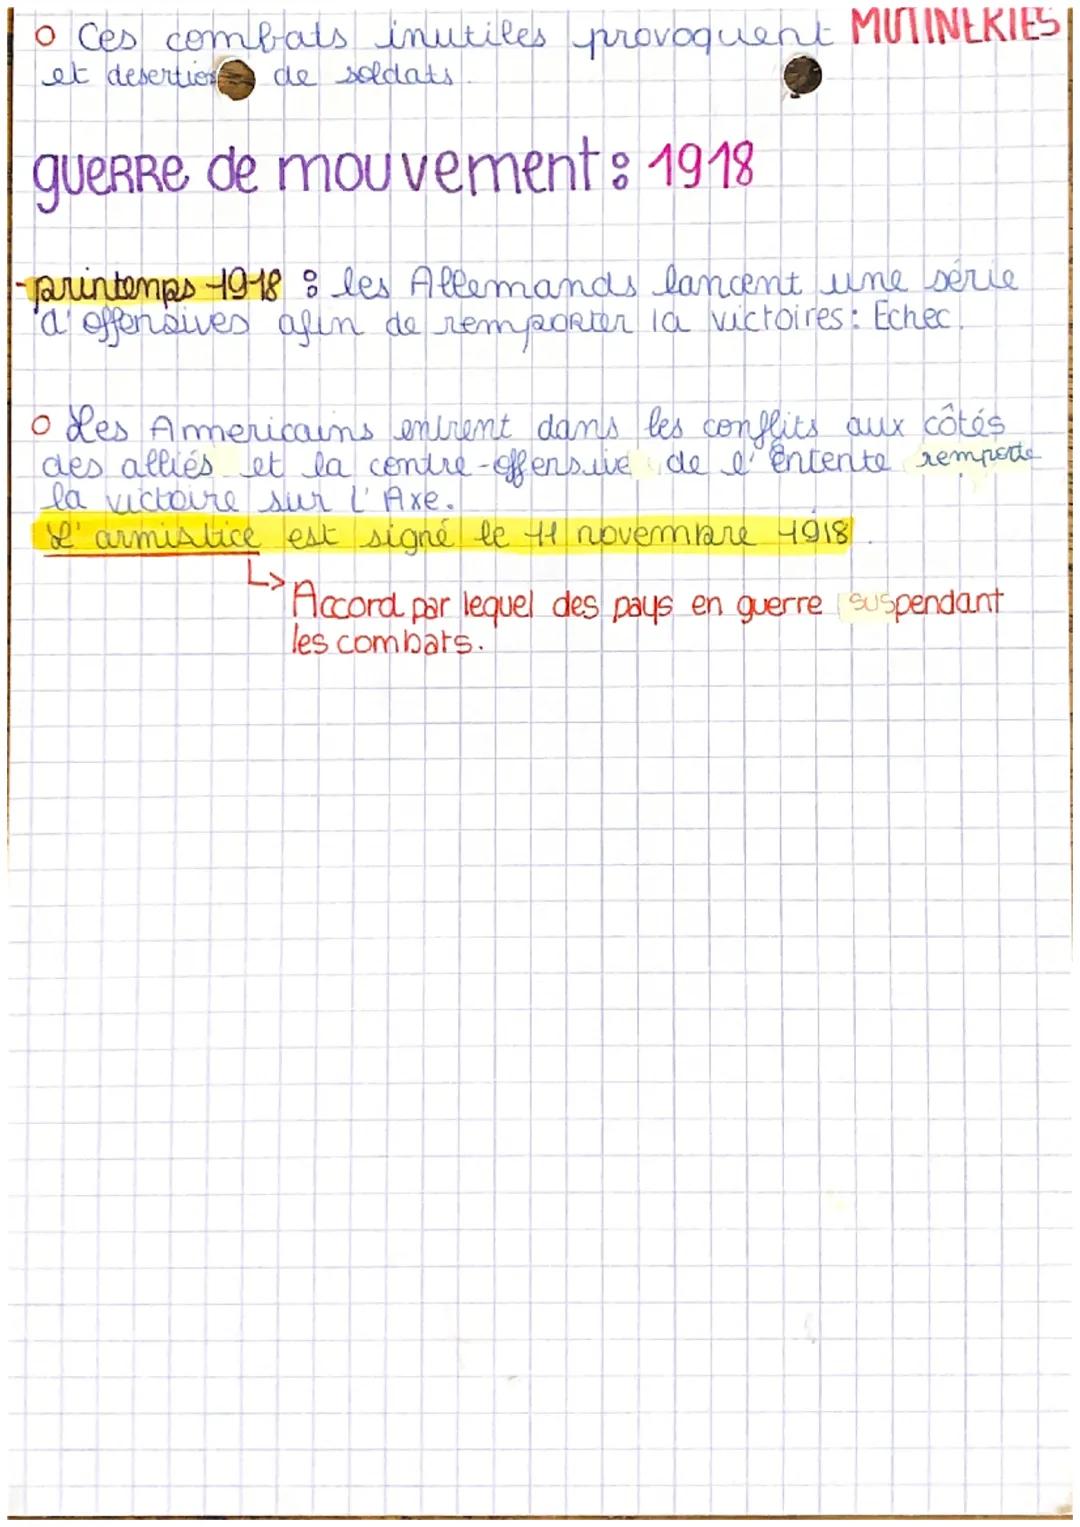 o Ces combats inutiles provoquent MUTINERIES
et desertions de soldats.
guerre de mouvement : 1918
- printemps 1918 : les Allemands lancent une série
d'offensives afin de remporter la victoires : Echec.
o Les Annericains entrent dans les conflits aux côtés
des alliés et la contre-offensive de l'entente remporte
la victoire sur l'Axe.
L'armistice est signé le 11 novembre 1918.
↳ Accord par lequel des pays en guerre suspendant
les combats.